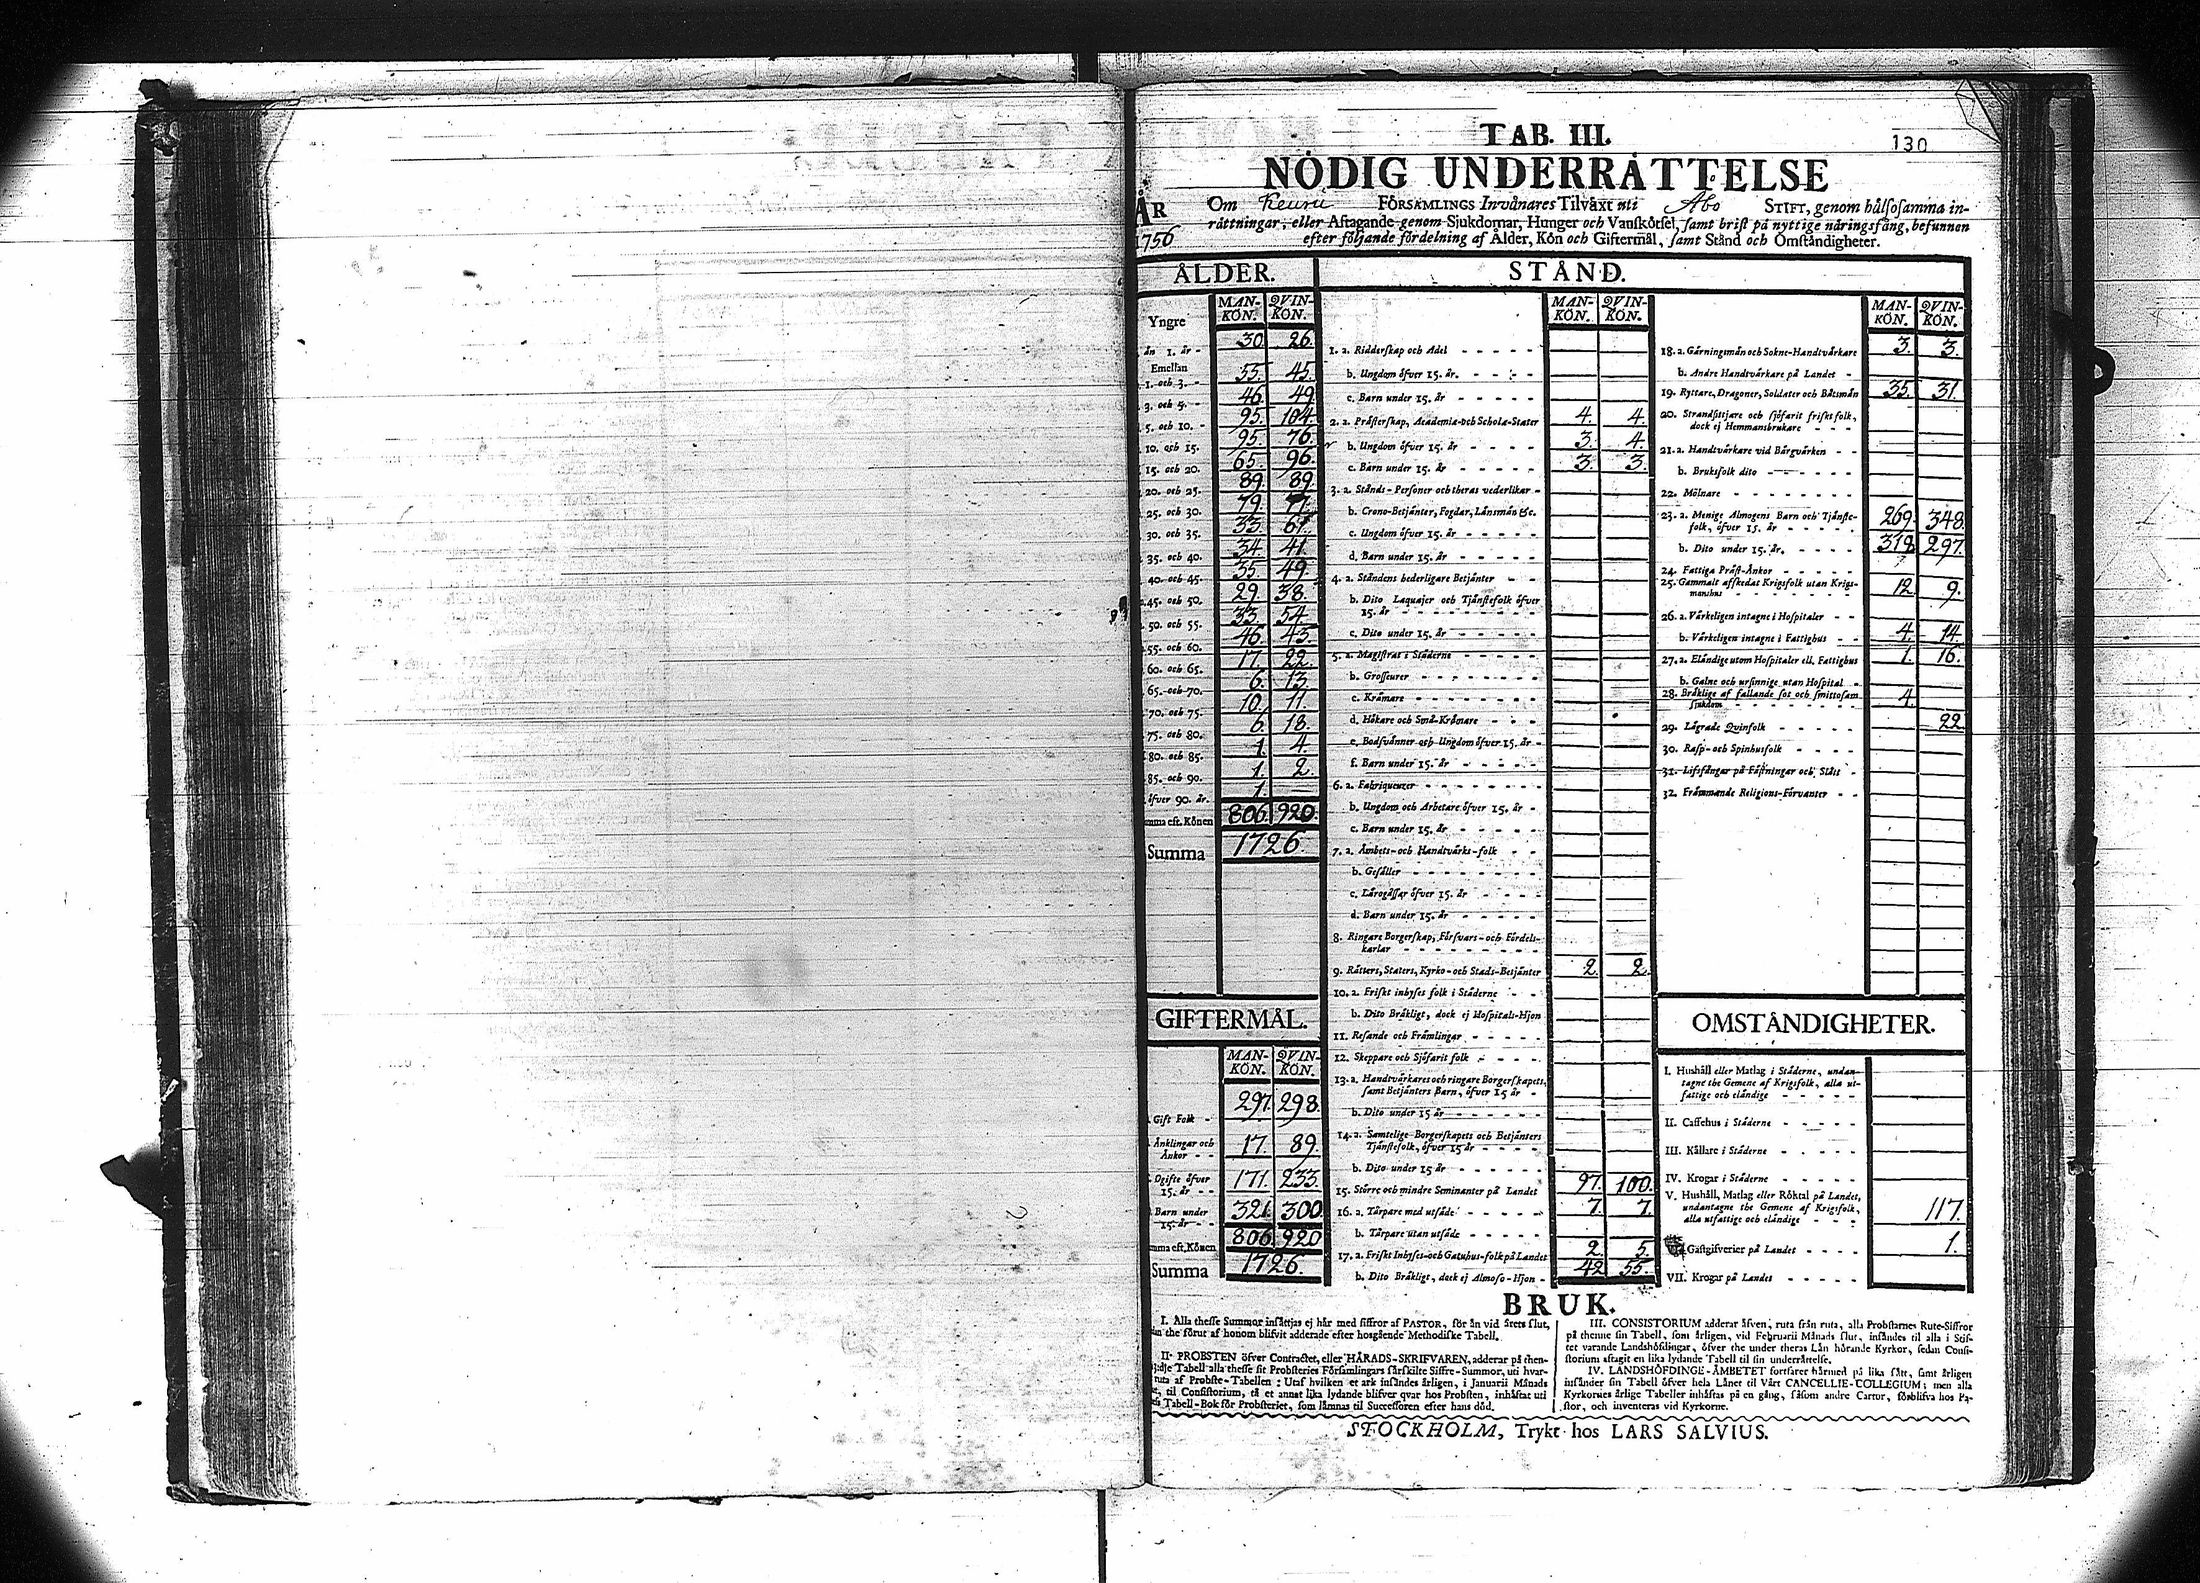 TAB. III.
130
NÖDIG UNDERRÅTTELSE
ÅR
1756
Om Keuru FÖRSAMLINGS Invånares Tilväxt uti Åbo STIFT, genom hälsosamma in-
rättningar, eller Aftagande genom Sjukdomar, Hunger och Vanskötsel, samt brist på nyttige näringsfång, befunnen
efter följande fördelning af Ålder, Kön och Giftermål, samt Stånd och Omständigheter.
ÅLDER.
MAN-KÖN. QVIN-KÖN.
Yngre
än 1. år - 30. 26.
Emellan
1. och 3. - 55. 45.
3. och 5. - 46. 49
5. och 10. - 95. 104.
10. och 15. 95. 76.
15. och 20. 65. 96.
20. och 25. 89. 89.
25. och 30. 79. 77.
30. och 35. 33. 67
35. och 40. 34. 41.
40. och 45. 35. 49
45. och 50. 29 38.
50. och 55. 33. 54
55. och 60. 46. 43.
60. och 65. 17. 22.
65. och 70. 6. 13.
70. och 75. 10. 11.
75. och 80. 6. 18.
80. och 85. 1. 4.
85. och 90. 1. 2.
öfver 90. år. 1.
mma eft. Könen 806. 920.
Summa 1726.
GIFTERMÅL.
MAN-KÖN. QVIN-KÖN.
Gift Folk - 297. 298.
Änklingar och
Änkor - - 17. 89.
Ogifte öfver
15. år - - 171. 233.
Barn under
15. år - - 321. 300
mma eft. Könen 806. 920
Summa 1726.
STÅND.
MAN-KÖN. QVIN-KÖN.
1. a. Ridderskap och Adel
b. Ungdom öfver 15. år.
c. Barn under 15. år
2. a. Prästerskap, Academiæ-och Scholæ-Stater 4. 4.
b. Ungdom öfver 15. år 3. 4.
c. Barn under 15. år 3. 3.
3. a. Stånds-Personer och theras vederlikar -
b. Crono-Betjänter, Fogdar, Länsmän &c.
c. Ungdom öfver 15. år
d. Barn under 15. år
4. a. Ståndens hederligare Betjänter
b. Dito Laquajer och Tjänstefolk öfver
15. år
c. Dito under 15. år
5. a. Magistrat i Städerne
b. Grosseurer
c. Krämare
d. Hökare och Små-Krämare
e. Bodsvänner och Ungdom öfver 15. år -
f. Barn under 15. år
6. a. Fabriqueurer
b. Ungdom och Arbetare öfver 15. år -
c. Barn under 15. år
7. a. Ämbets-och Handtvärks-folk
b. Gesäller
c. Lärogåssar öfver 15. år
d. Barn under 15. år
8. Ringare Borgerskap, Försvars-och Fördels-
karlar
9. Rätters, Staters, Kyrko-och Stads-Betjänter 2. 2.
10. a. Friskt inhyses folk i Städerne
b. Dito Bräkligt, dock ej Hospitals-Hjon
11. Resande och Främlingar
12. Skeppare och Sjöfarit folk
13. a. Handtvärkares och ringare Borgerskapets,
samt Betjänters Barn, öfver 15 år
b. Dito under 15 år
14. a. Samtelige Borgerskapets och Betjänters
Tjänstefolk, öfver 15 år
b. Dito under 15 år
15. Större och mindre Seminanter på Landet 97. 100.
16. a. Tårpare med utsäde 7. 7.
b. Tårpare utan utsäde
17. a. Friskt Inhyses-och Gatuhus-folk på Landet 2. 5.
b. Dito Bräkligt, dock ej Almoso-Hjon - 42 55.
MAN-KÖN. QVIN-KÖN.
18. a. Gärningsmän och Sokne-Handtvärkare 3. 3.
b. Andre Handtvärkare på Landet -
19. Ryttare, Dragoner, Soldater och Båtsmän 35. 31.
20. Strandsittjare och sjöfarit friskt folk,
dock ej Hemmansbrukare
21. a. Handtvärkare vid Bärgvärken
b. Bruksfolk dito
22. Mölnare
23. a. Menige Almogens Barn och Tjänste-
folk, öfver 15. år 269. 348.
b. Dito under 15. år. 318. 297.
24. Fattiga Präst-Änkor
25. Gammalt affskedat Krigsfolk utan Krigs-
manshus 12. 9.
26. a. Värkeligen intagne i Hospitaler
b. Värkeligen intagne i Fattighus 4. 14.
27. a. Eländige utom Hospitaler ell. Fattighus 1. 16.
b. Galne och ursinnige utan Hospital
28. Bräklige af fallande sot och smittosam
sjukdom 4.
29. Lägrade Qvinfolk 22.
30. Rasp-och Spinhusfolk
31. Lifsfångar på Fästningar och Slått
32. Främmande Religions-Förvanter
OMSTÅNDIGHETER.
I. Hushåll eller Matlag i Städerne, undan-
tagne the Gemene af Krigsfolk, alla ut-
fattige och eländige
II. Caffehus i Städerne
III. Källare i Städerne
IV. Krogar i Städerne
V. Hushåll, Matlag eller Röktal på Landet,
undantagne the Gemene af Krigsfolk,
alla utfattige och eländige 117.
Gästgifverier på Landet 1.
VII. Krogar på Landet
BRUK.
I. Alla thesse Summor insättjas ej här med siffror af PASTOR, för än vid årets slut,
the förut af honom blifvit adderade efter hosgående Methodiske Tabell.
II. PROBSTEN öfver Contractet, eller HÄRADS-SKRIFVAREN, adderar på then-
Tabell alla thesse sit Probsteries Församlingars särskilte Siffre-Summor, uti hvar-
ruta af Probste-Tabellen: Utaf hvilken et ark insändes årligen, i Januarii Månads
til Consistorium, tå et annat lika lydande blifver qvar hos Probsten, inhäftat uti
Tabell-Bok för Probsteriet, som lämnas til Successoren efter hans död.
III. CONSISTORIUM adderar äfven, ruta från ruta, alla Probstarnes Rute-Siffror
på thenne sin Tabell, som årligen, vid Februarii Månads slut, insändes til alla i Stif-
tet varande Landshöfdingar, öfver the under theras Län hörande Kyrkor, sedan Consi-
storium aftagit en lika lydande Tabell til sin underrättelse.
IV. LANDSHÖFDINGE-ÄMBETET fortfarer härmed på lika sätt, samt årligen
insänder sin Tabell öfver hela Länet til Vårt CANCELLIE-COLLEGIUM; men alla
Kyrkornes årlige Tabeller inhäftas på en gång, såsom andre Cartor, förblifva hos Pa-
stor, och inventeras vid Kyrkorne.
STOCKHOLM, Trykt hos LARS SALVIUS.